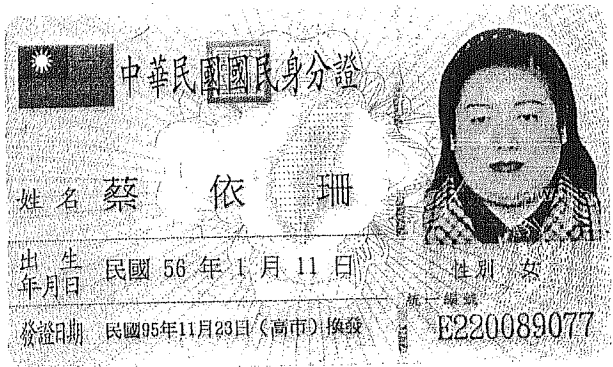 中華民國國民身分證
姓名 蔡依珊
出生年月日 民國 56 年 1 月 11 日
性別 女
發證日期 民國95年11月23日(高市)換發
統一編號
E220089077